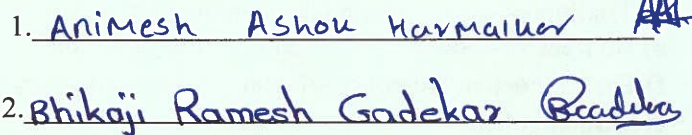 1. Animesh Ashok Harmalkar
2. Bhikaji Ramesh Gadekar